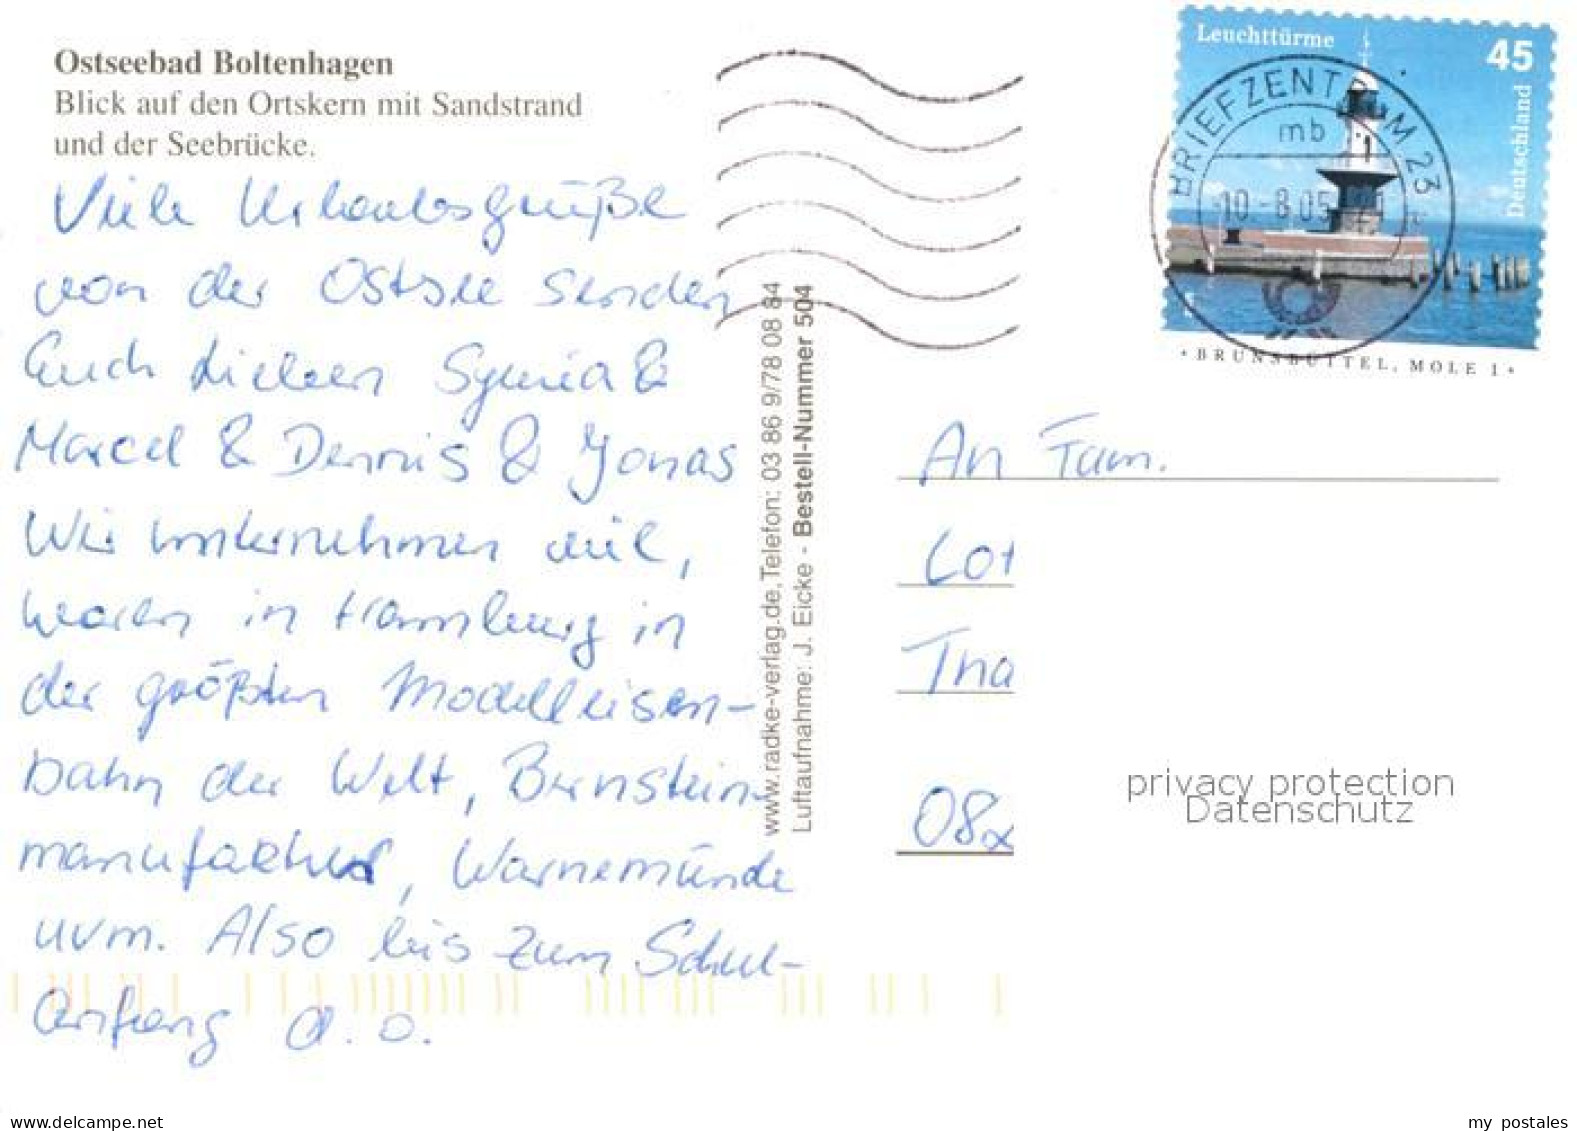 Ostseebad Boltenhagen
Blick auf den Ortskern mit Sandstrand
und der Seebrücke.
Viele Urlaubsgrüße
von der Ostsee senden
Euch Lieben &
Marcel & Dennis & Jonas
Wir unternehmen viel,
waren in Hamburg in
der größten Modelleisen-
bahn der Welt, Bernstein-
manufaktur, Warnemünde
uvm. Also bis zum Schul-
anfang
www.radke-verlag.de, Telefon: 03 86 9/78 08 84
Luftaufnahme: J. Eicke - Bestell-Nummer 504
Leuchttürme
45
Deutschland
BRIEFZENTRUM 23
mb
10.-8.05
• BRUNSBÜTTEL, MOLE 1 •
An Fam.
Lot
Tha
08
privacy protection
Datenschutz
www.delcampe.net
my_postales